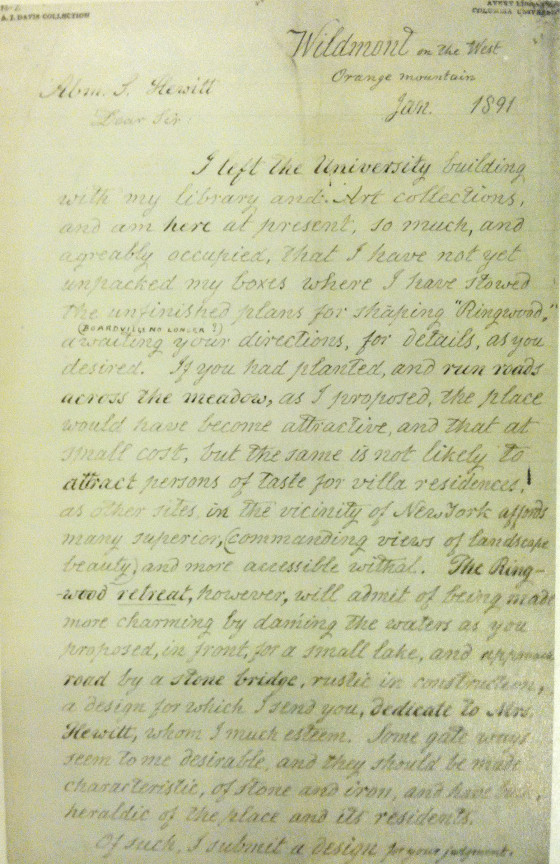 A. J. DAVIS COLLECTION
AVERY LIBRARY
COLUMBIA UNIVERSITY
Wildmont on the West
Orange mountain
Jan. 1891
Abm. S. Hewitt
Dear Sir:
I left the University building
with my library and Art collections,
and am here at present, so much, and
agreably occupied, that I have not yet
unpacked my boxes where I have stowed
the unfinished plans for shaping "Ringwood,"
(BOARDVILLE NO LONGER?)
awaiting your directions, for details, as you
desired. If you had planted, and run roads
across the meadow, as I proposed, the place
would have become attractive, and that at
small cost, but the same is not likely to
attract persons of taste for villa residences,
as other sites, in the vicinity of New York affords
many superior, (commanding views of landscape
beauty) and more accessible withal. The Ring-
-wood retreat, however, will admit of being made
more charming by daming the waters as you
proposed, in front, for a small lake, and approach
road by a stone bridge, rustic in construction,
a design for which I send you, dedicate to Mrs.
Hewitt, whom I much esteem. Some gate ways
seem to me desirable, and they should be made
characteristic, of stone and iron, and have
heraldic of the place and its residents.
Of such, I submit a design for your judgment.